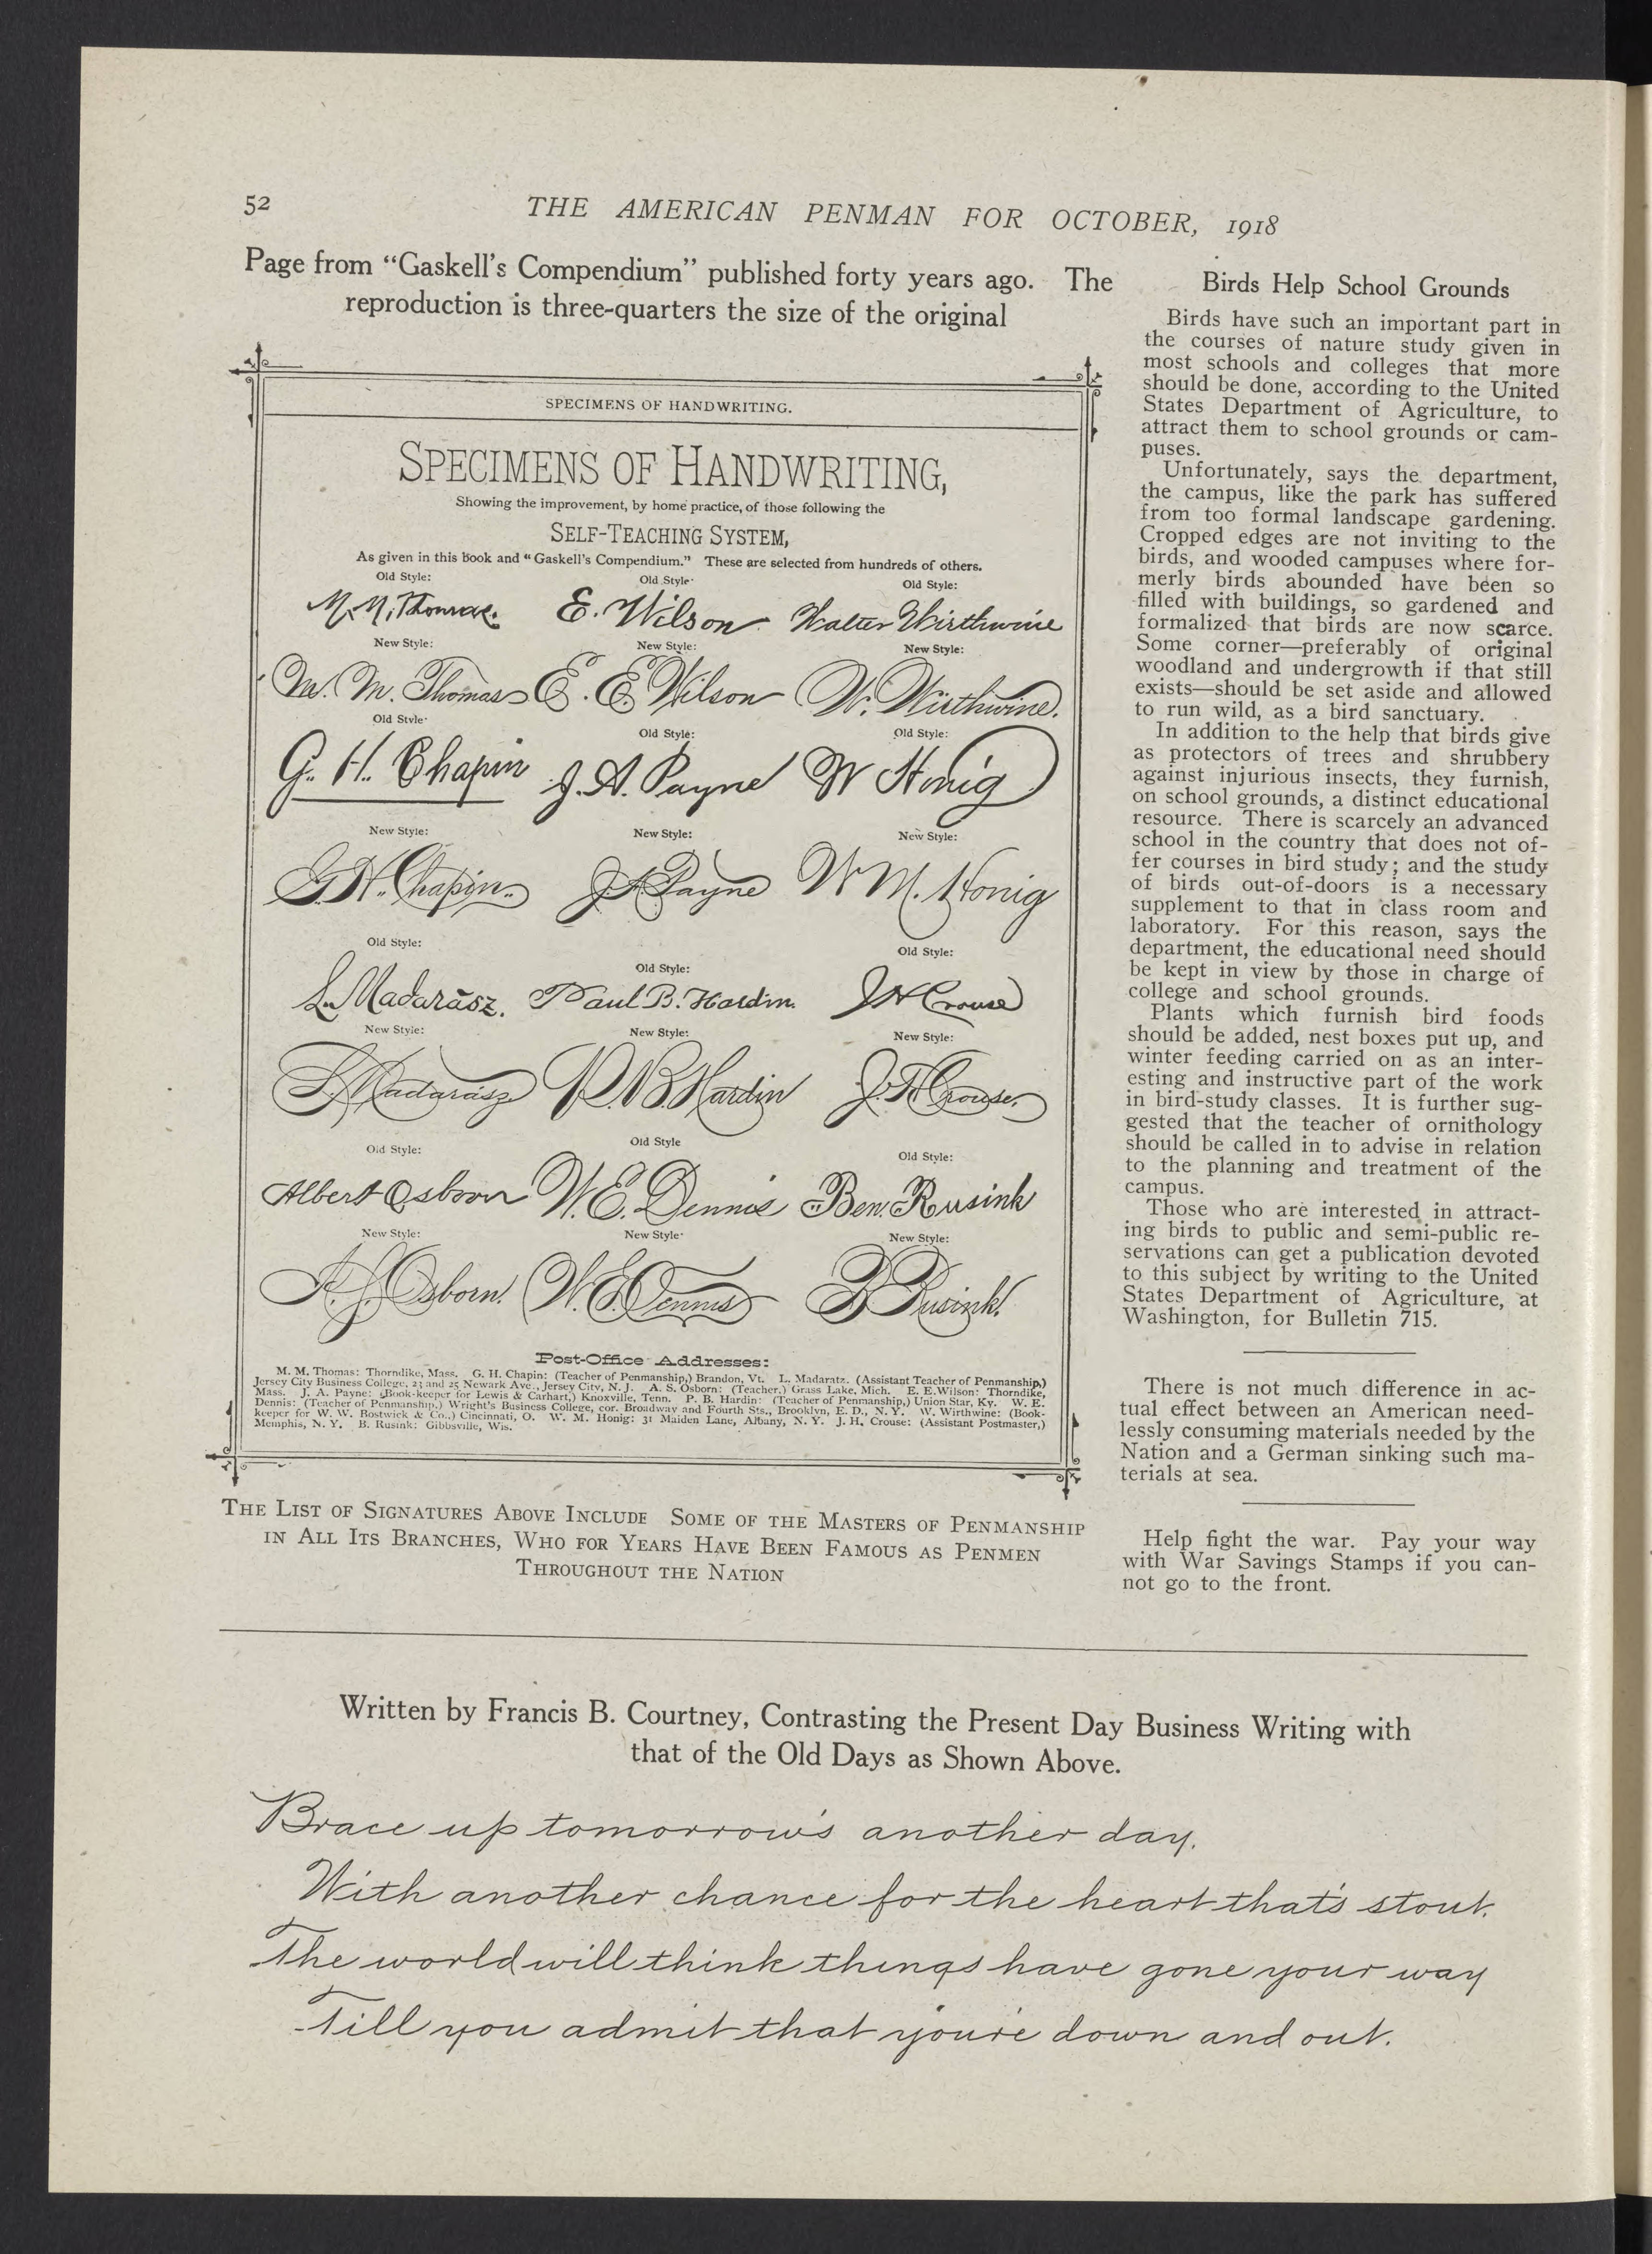 52
THE AMERICAN PENMAN FOR OCTOBER, 1918
Page from “Gaskell’s Compendium” published forty years ago. The
reproduction is three-quarters the size of the original
SPECIMENS OF HANDWRITING.
SPECIMENS OF HANDWRITING,
Showing the improvement, by home practice, of those following the
SELF-TEACHING SYSTEM,
As given in this book and “Gaskell’s Compendium.” These are selected from hundreds of others.
Old Style: Old Style· Old Style:
M. M. Thomas. E. Wilson Walter Wirthwine
New Style: New Style: New Style:
M. M. Thomas E. E. Wilson W. Wirthwine.
Old Style· Old Style: Old Style:
G. H. Chapin J. A. Payne W Honig
New Style: New Style: New Style:
G. H. Chapin. J A Payne W M. Honig
Old Style: Old Style: Old Style:
L. Madarász. Paul B. Hardin. J H Crouse
New Style: New Style: New Style:
L. Madarász P. B. Hardin J. H. Crouse.
Old Style: Old Style Old Style:
Albert Osborn W. E. Dennis Ben. Rusink
New Style: New Style· New Style:
A. S. Osborn. W. E. Dennis B Rusink.
Post-Office Addresses:
M. M. Thomas: Thorndike, Mass. G. H. Chapin: (Teacher of Penmanship,) Brandon, Vt. L. Madaratz. (Assistant Teacher of Penmanship,)
Jersey City Business College, 23 and 25 Newark Ave., Jersey City, N. J. A. S. Osborn: (Teacher,) Grass Lake, Mich. E. E. Wilson: Thorndike,
Mass. J. A. Payne: (Book-keeper for Lewis & Carhart,) Knoxville, Tenn. P. B. Hardin: (Teacher of Penmanship,) Union Star, Ky. W. E.
Dennis: (Teacher of Penmanship,) Wright’s Business College, cor. Broadway and Fourth Sts., Brooklyn, E. D., N. Y. W. Wirthwine: (Book-
keeper for W. W. Bostwick & Co.,) Cincinnati, O. W. M. Honig: 31 Maiden Lane, Albany, N. Y. J. H. Crouse: (Assistant Postmaster,)
Memphis, N. Y. B. Rusink: Gibbsville, Wis.
THE LIST OF SIGNATURES ABOVE INCLUDE SOME OF THE MASTERS OF PENMANSHIP
IN ALL ITS BRANCHES, WHO FOR YEARS HAVE BEEN FAMOUS AS PENMEN
THROUGHOUT THE NATION
Birds Help School Grounds
Birds have such an important part in
the courses of nature study given in
most schools and colleges that more
should be done, according to the United
States Department of Agriculture, to
attract them to school grounds or cam-
puses.
Unfortunately, says the department,
the campus, like the park has suffered
from too formal landscape gardening.
Cropped edges are not inviting to the
birds, and wooded campuses where for-
merly birds abounded have been so
filled with buildings, so gardened and
formalized that birds are now scarce.
Some corner—preferably of original
woodland and undergrowth if that still
exists—should be set aside and allowed
to run wild, as a bird sanctuary.
In addition to the help that birds give
as protectors of trees and shrubbery
against injurious insects, they furnish,
on school grounds, a distinct educational
resource. There is scarcely an advanced
school in the country that does not of-
fer courses in bird study; and the study
of birds out-of-doors is a necessary
supplement to that in class room and
laboratory. For this reason, says the
department, the educational need should
be kept in view by those in charge of
college and school grounds.
Plants which furnish bird foods
should be added, nest boxes put up, and
winter feeding carried on as an inter-
esting and instructive part of the work
in bird-study classes. It is further sug-
gested that the teacher of ornithology
should be called in to advise in relation
to the planning and treatment of the
campus.
Those who are interested in attract-
ing birds to public and semi-public re-
servations can get a publication devoted
to this subject by writing to the United
States Department of Agriculture, at
Washington, for Bulletin 715.
There is not much difference in ac-
tual effect between an American need-
lessly consuming materials needed by the
Nation and a German sinking such ma-
terials at sea.
Help fight the war. Pay your way
with War Savings Stamps if you can-
not go to the front.
Written by Francis B. Courtney, Contrasting the Present Day Business Writing with
that of the Old Days as Shown Above.
Brace up tomorrow's another day.
With another chance for the heart that's stout.
The world will think things have gone your way
Till you admit that you're down and out.